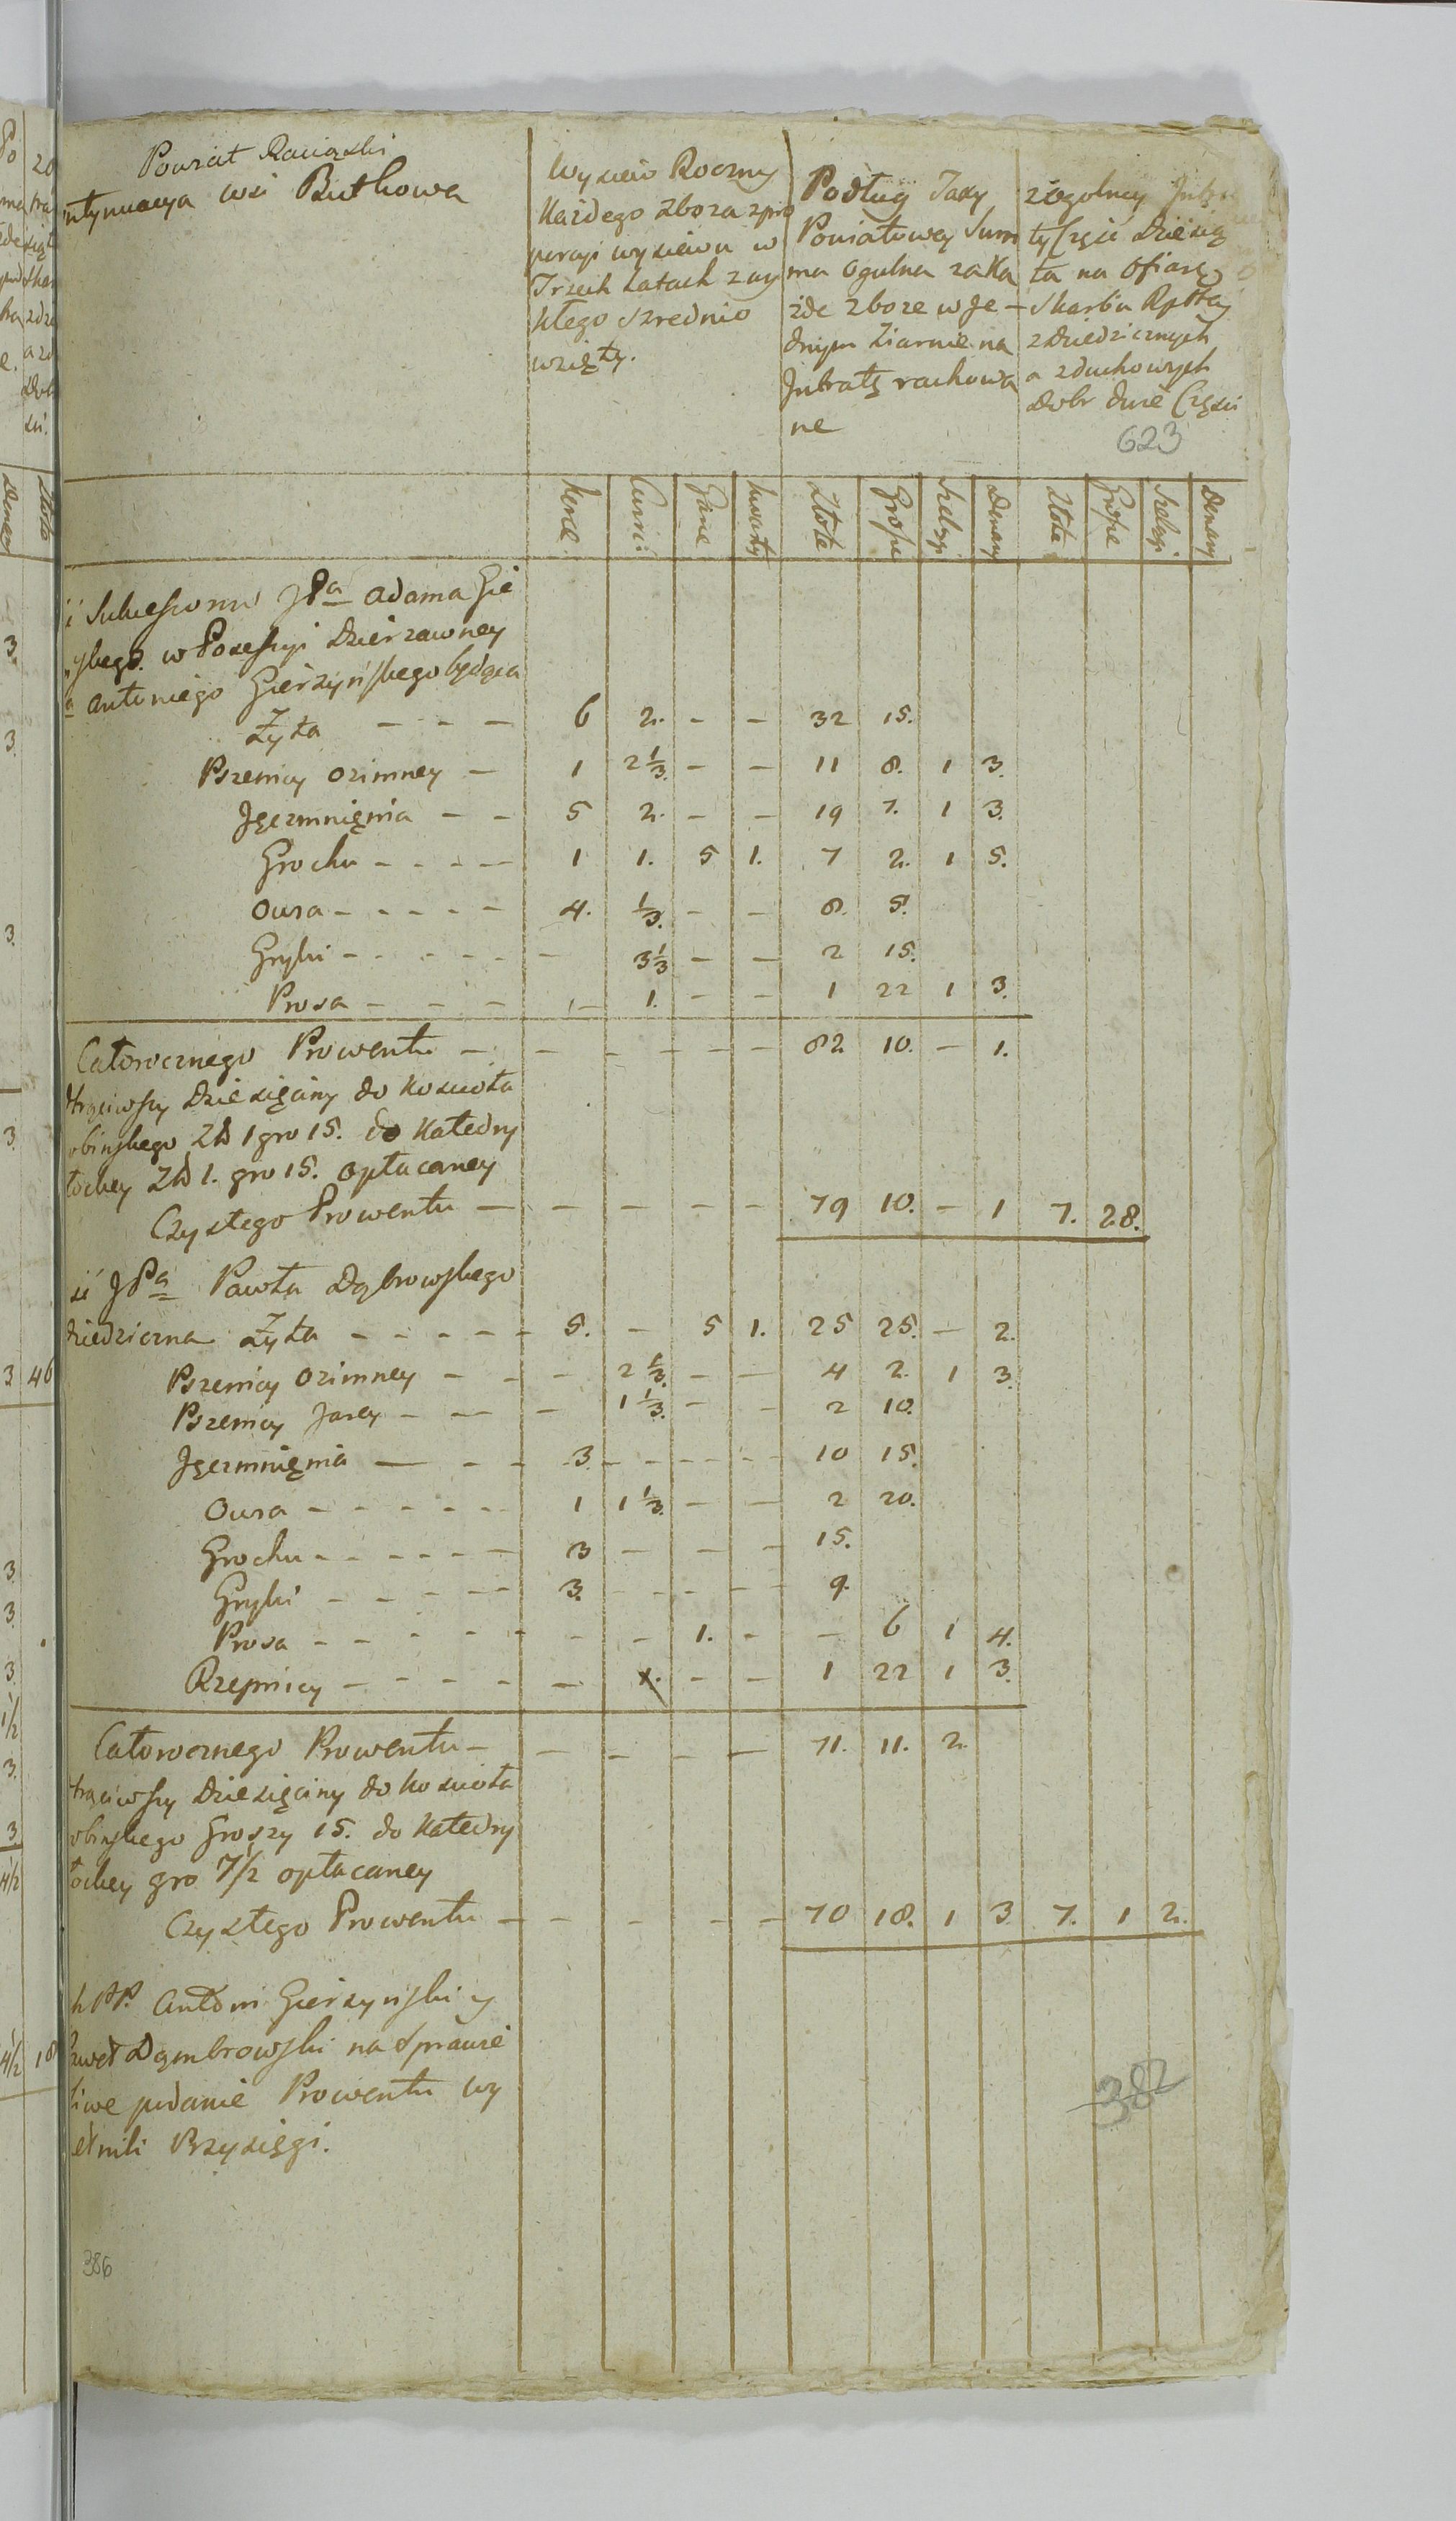 Powiat Raciąski
ntynuacya wsi Butkowa
Wysiew Roczny
Każdego zboza z pro
porcyi wysiewu w
Trzech Latach zwy
kłego szrednio
wzięty.
Podług Taxy
Powiatowey Sum
ma Ogulna za Ka
żde zboze w Je-
dnym Ziarnie na
Jntratę rachowa
ne
zogolney Jntra
ty Część Dziesią
ta na Ofiarę
Skarbu Rpltey
z Dziedzicznych
a z duchownych
Dobr dwie Części
623
Korce Cwierci Garce Kwarty Złote Grosze Szelągi Denary Złote Grosze Szelągi Denary
i Sukcessorow JPa Adama Gie
yskego w Possessyi Dzierzawney
a Antoniego Gierzyńskiego będąca
Żyta - - - 6 2. - - 32 15.
Pszenicy Ozimney - 1 2 1/3. - - 11 8. 1 3.
Jęczmnięnia - - 5 2. - - 19 7. 1 3.
Grochu - - - - 1 1. 5 1. 7 2. 1 5.
Owsa - - - - - 4. 1/3. - - 8. 5.
Gryki - - - - - - 3 1/3 - - 2 15.
Prosa - - - - 1. - - 1 22 1 3.
Całorocznego Prowentu - - - - - - 82 10. - 1.
trąciwszy Dziesięciny do Koscioła
obinskego Zł 1 gro 15. do Katedry
łockey Zł 1. gro 15. opłacaney
Czystego Prowentu - - - - - - 79 10. - 1 7. 28.
ść JPa Pawła Dąbrowskego
dziedziczna Żyta - - - - - 5. - 5 1. 25 25. - 2.
Pszenicy Ozimney - - - 2 1/3. - - 4 2. 1 3.
Pszenicy Jarey - - - 1 1/3. - - 2 10.
Jęczmnięnia - - - 3. - - - - 10 15.
Owsa - - - - - - 1 1 1/3. - - 2 20.
Grochu - - - - - 3 - - - 15.
Gryki - - - - 3. - - - - 9.
Prosa - - - - - - - 1. - - 6 1 4.
Rzepnicy - - - - - 1. - - 1 22 1 3.
Całorocznego Prowentu - - - - - 71. 11. 2.
trąciwszy Dziesięciny do Koscioła
obinskego Groszy 15. do Katedry
łockey gro 7 1/2 opłacaney
Czystego Prowentu - - - - - 70 18. 1 3 7. 1 2.
h PP. Antoni Gierzyński y
aweł Dąmbrowski na Sprawie
liwe podanie Prowentu wy
ełnili Przysięgi.
382
386